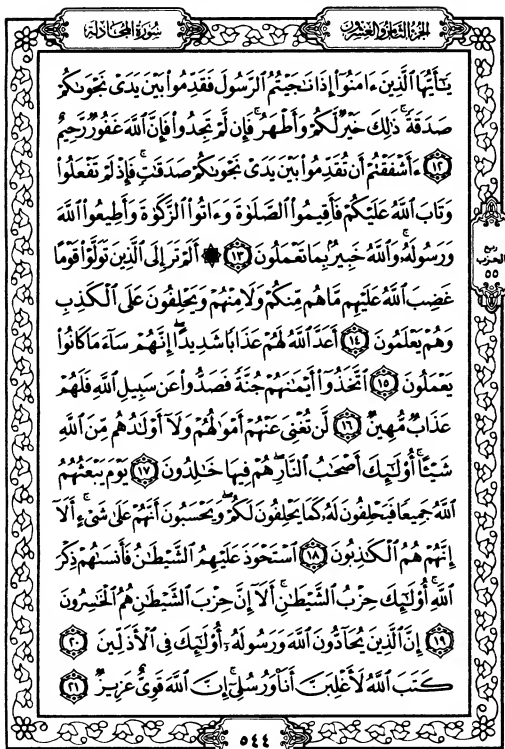 سُورَةُ المُجَادلَة
الجُزءُ الثَّامِنُ وَالعِشرُونَ
يَٰٓأَيُّهَا ٱلَّذِينَ ءَامَنُوٓاْ إِذَا نَٰجَيۡتُمُ ٱلرَّسُولَ فَقَدِّمُواْ بَيۡنَ يَدَيۡ نَجۡوَىٰكُمۡ
صَدَقَةٗۚ ذَٰلِكَ خَيۡرٞ لَّكُمۡ وَأَطۡهَرُۚ فَإِن لَّمۡ تَجِدُواْ فَإِنَّ ٱللَّهَ غَفُورٞ رَّحِيمٌ
١٢ ءَأَشۡفَقۡتُمۡ أَن تُقَدِّمُواْ بَيۡنَ يَدَيۡ نَجۡوَىٰكُمۡ صَدَقَٰتٖۚ فَإِذۡ لَمۡ تَفۡعَلُواْ
وَتَابَ ٱللَّهُ عَلَيۡكُمۡ فَأَقِيمُواْ ٱلصَّلَوٰةَ وَءَاتُواْ ٱلزَّكَوٰةَ وَأَطِيعُواْ ٱللَّهَ
وَرَسُولَهُۥۚ وَٱللَّهُ خَبِيرُۢ بِمَا تَعۡمَلُونَ ١٣ ۞ أَلَمۡ تَرَ إِلَى ٱلَّذِينَ تَوَلَّوۡاْ قَوۡمًا
غَضِبَ ٱللَّهُ عَلَيۡهِم مَّا هُم مِّنكُمۡ وَلَا مِنۡهُمۡ وَيَحۡلِفُونَ عَلَى ٱلۡكَذِبِ
وَهُمۡ يَعۡلَمُونَ ١٤ أَعَدَّ ٱللَّهُ لَهُمۡ عَذَابٗا شَدِيدًاۖ إِنَّهُمۡ سَآءَ مَا كَانُواْ
يَعۡمَلُونَ ١٥ ٱتَّخَذُوٓاْ أَيۡمَٰنَهُمۡ جُنَّةٗ فَصَدُّواْ عَن سَبِيلِ ٱللَّهِ فَلَهُمۡ
عَذَابٞ مُّهِينٞ ١٦ لَّن تُغۡنِيَ عَنۡهُمۡ أَمۡوَٰلُهُمۡ وَلَآ أَوۡلَٰدُهُم مِّنَ ٱللَّهِ
شَيۡـًٔاۚ أُوْلَٰٓئِكَ أَصۡحَٰبُ ٱلنَّارِۖ هُمۡ فِيهَا خَٰلِدُونَ ١٧ يَوۡمَ يَبۡعَثُهُمُ
ٱللَّهُ جَمِيعٗا فَيَحۡلِفُونَ لَهُۥ كَمَا يَحۡلِفُونَ لَكُمۡۖ وَيَحۡسَبُونَ أَنَّهُمۡ عَلَىٰ شَيۡءٍۚ أَلَآ
إِنَّهُمۡ هُمُ ٱلۡكَٰذِبُونَ ١٨ ٱسۡتَحۡوَذَ عَلَيۡهِمُ ٱلشَّيۡطَٰنُ فَأَنسَىٰهُمۡ ذِكۡرَ
ٱللَّهِۚ أُوْلَٰٓئِكَ حِزۡبُ ٱلشَّيۡطَٰنِۚ أَلَآ إِنَّ حِزۡبَ ٱلشَّيۡطَٰنِ هُمُ ٱلۡخَٰسِرُونَ
١٩ إِنَّ ٱلَّذِينَ يُحَآدُّونَ ٱللَّهَ وَرَسُولَهُۥٓ أُوْلَٰٓئِكَ فِي ٱلۡأَذَلِّينَ ٢٠
كَتَبَ ٱللَّهُ لَأَغۡلِبَنَّ أَنَا۠ وَرُسُلِيٓۚ إِنَّ ٱللَّهَ قَوِيٌّ عَزِيزٞ ٢١
ربع
الحزب
٥٥
٥٤٤